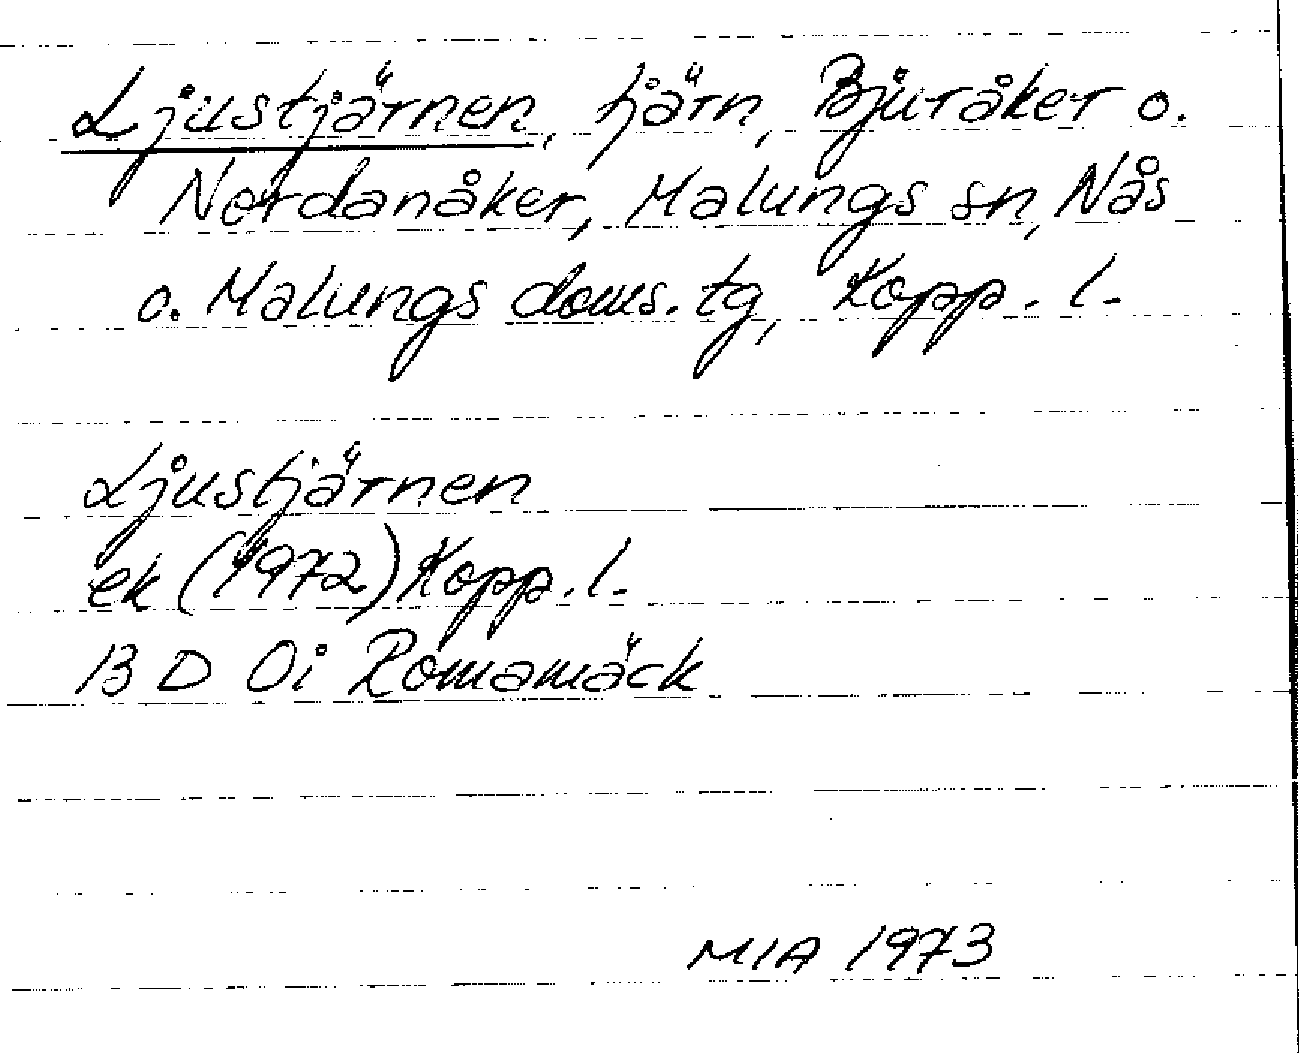 Ljustjärnen, tjärn, Bjuråker o.
Nordanåker, Malungs sn, Nås
o. Malungs doms. tg, Kopp. l.
Ljustjärnen
ek (1972) Kopp. l.
13 D 0i Romamäck
MIA 1973